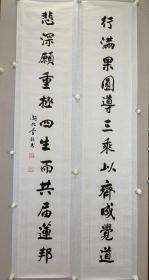 行滿果圓導三乘以齊成覺道
悲深願重拯四生而共届蓮邦